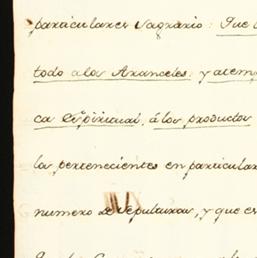 particulares Sagrario: Que
todo a los Aranceles: y atem
ca Espiritual, á los productos
la pertenecientes en particular
numero de sepulturas, y que es